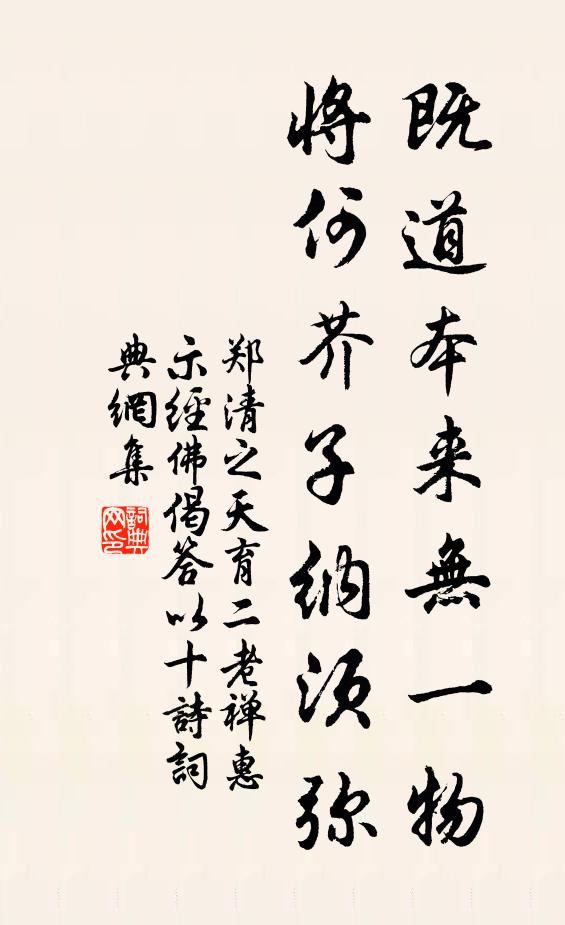 既道本来無一物
将何芥子纳须弥
郑清之天育二老禅惠
示经佛偈答以十詩詞
典網集
詞典网印